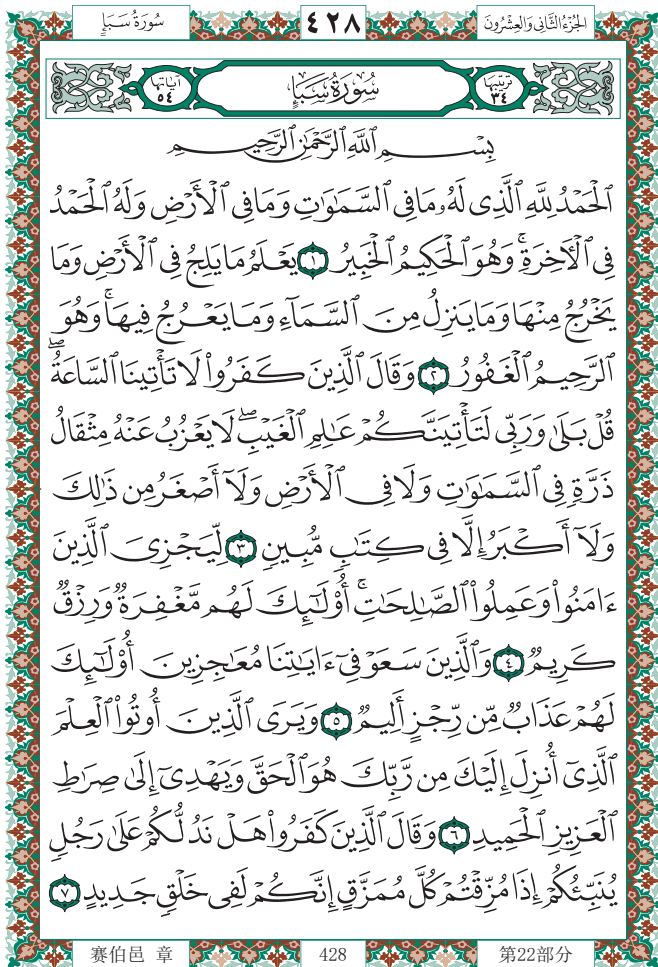 سُورَةُ سَبَإٍ ٤٢٨ الجُزءُ الثَّانِي وَالعِشْرُونَ
تَرْتِيبُهَا ٣٤ سُورَةُ سَبَإٍ آيَاتُهَا ٥٤
بِسْمِ ٱللَّهِ ٱلرَّحْمَٰنِ ٱلرَّحِيمِ
ٱلْحَمْدُ لِلَّهِ ٱلَّذِى لَهُۥ مَا فِى ٱلسَّمَٰوَٰتِ وَمَا فِى ٱلْأَرْضِ وَلَهُ ٱلْحَمْدُ
فِى ٱلْءَاخِرَةِۚ وَهُوَ ٱلْحَكِيمُ ٱلْخَبِيرُ ١ يَعْلَمُ مَا يَلِجُ فِى ٱلْأَرْضِ وَمَا
يَخْرُجُ مِنْهَا وَمَا يَنزِلُ مِنَ ٱلسَّمَآءِ وَمَا يَعْرُجُ فِيهَاۚ وَهُوَ
ٱلرَّحِيمُ ٱلْغَفُورُ ٢ وَقَالَ ٱلَّذِينَ كَفَرُوا۟ لَا تَأْتِينَا ٱلسَّاعَةُۖ
قُلْ بَلَىٰ وَرَبِّى لَتَأْتِيَنَّكُمْ عَٰلِمِ ٱلْغَيْبِۖ لَا يَعْزُبُ عَنْهُ مِثْقَالُ
ذَرَّةٍ فِى ٱلسَّمَٰوَٰتِ وَلَا فِى ٱلْأَرْضِ وَلَآ أَصْغَرُ مِن ذَٰلِكَ
وَلَآ أَكْبَرُ إِلَّا فِى كِتَٰبٍ مُّبِينٍ ٣ لِّيَجْزِىَ ٱلَّذِينَ
ءَامَنُوا۟ وَعَمِلُوا۟ ٱلصَّٰلِحَٰتِۚ أُو۟لَٰٓئِكَ لَهُم مَّغْفِرَةٌ وَرِزْقٌ
كَرِيمٌ ٤ وَٱلَّذِينَ سَعَوْ فِىٓ ءَايَٰتِنَا مُعَٰجِزِينَ أُو۟لَٰٓئِكَ
لَهُمْ عَذَابٌ مِّن رِّجْزٍ أَلِيمٌ ٥ وَيَرَى ٱلَّذِينَ أُوتُوا۟ ٱلْعِلْمَ
ٱلَّذِىٓ أُنزِلَ إِلَيْكَ مِن رَّبِّكَ هُوَ ٱلْحَقَّ وَيَهْدِىٓ إِلَىٰ صِرَٰطِ
ٱلْعَزِيزِ ٱلْحَمِيدِ ٦ وَقَالَ ٱلَّذِينَ كَفَرُوا۟ هَلْ نَدُلُّكُمْ عَلَىٰ رَجُلٍ
يُنَبِّئُكُمْ إِذَا مُزِّقْتُمْ كُلَّ مُمَزَّقٍ إِنَّكُمْ لَفِى خَلْقٍ جَدِيدٍ ٧
赛伯邑 章 428 第22部分